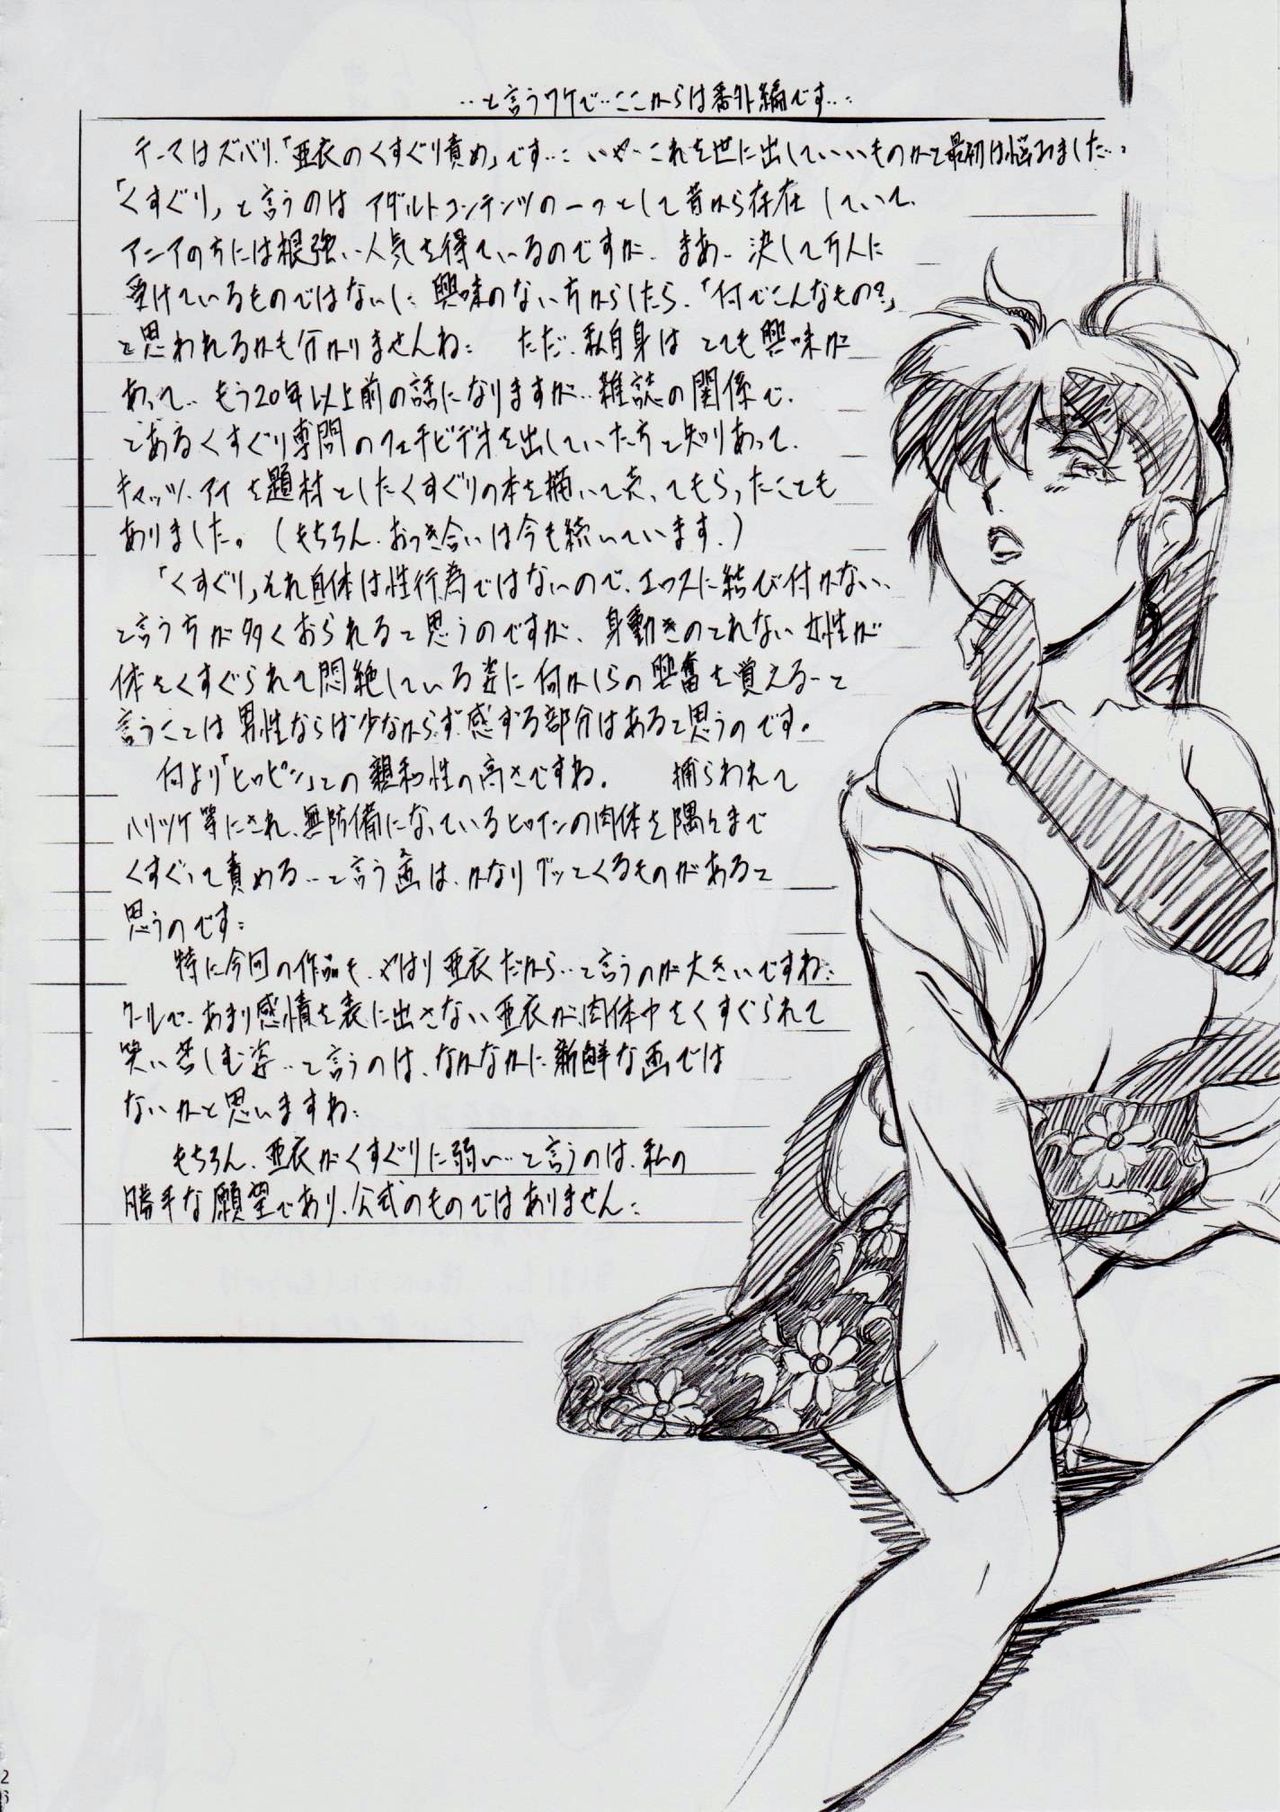 ‥と言うワケで‥ここからは番外編です‥:
テーマはズバリ、「亜衣のくすぐり責め」です‥: いやーこれを世に出していいものかと最初は悩みました‥、
「くすぐり」と言うのはアダルトコンテンツの一つとして昔から存在していて、
マニアの方には根強い人気を得ているのですが、まあ、決して万人に
受けているものではないし: 興味のない方からしたら、「何でこんなもの?」
と思われるかも分かりませんね: ただ、私自身はとても興味が
あって、もう20年以上前の話になりますが‥雑誌の関係で、
とあるくすぐり専門のフェチビデオを出していた方と知りあって、
キャッツ・アイを題材としたくすぐりの本を描いて売ってもらったことも
ありました。(もちろん、おつき合いは今も続いています。)
「くすぐり」それ自体は性行為ではないので、エロスに結び付かない、
と言う方が多くおられると思うのですが、身動きのとれない女性が
体をくすぐられて悶絶している姿に何かしらの興奮を覚える‥と
言うことは男性ならば少なからず感ずる部分はあると思うのです。
何より「ヒロピン」との親和性の高さですね。 捕らわれて
ハリツケ等にされ、無防備になっているヒロインの肉体を隅々まで
くすぐって責める‥と言う画は、かなりグッとくるものがあると
思うのです:
特に今回の作品も、やはり亜衣だから‥と言うのが大きいですね:
クールで、あまり感情を表に出さない亜衣が、肉体中をくすぐられて
笑い苦しむ姿‥と言うのは、なかなかに新鮮な画では
ないかと思いますね:
もちろん、亜衣がくすぐりに弱い‥と言うのは、私の
勝手な願望であり、公式のものではありません:
26